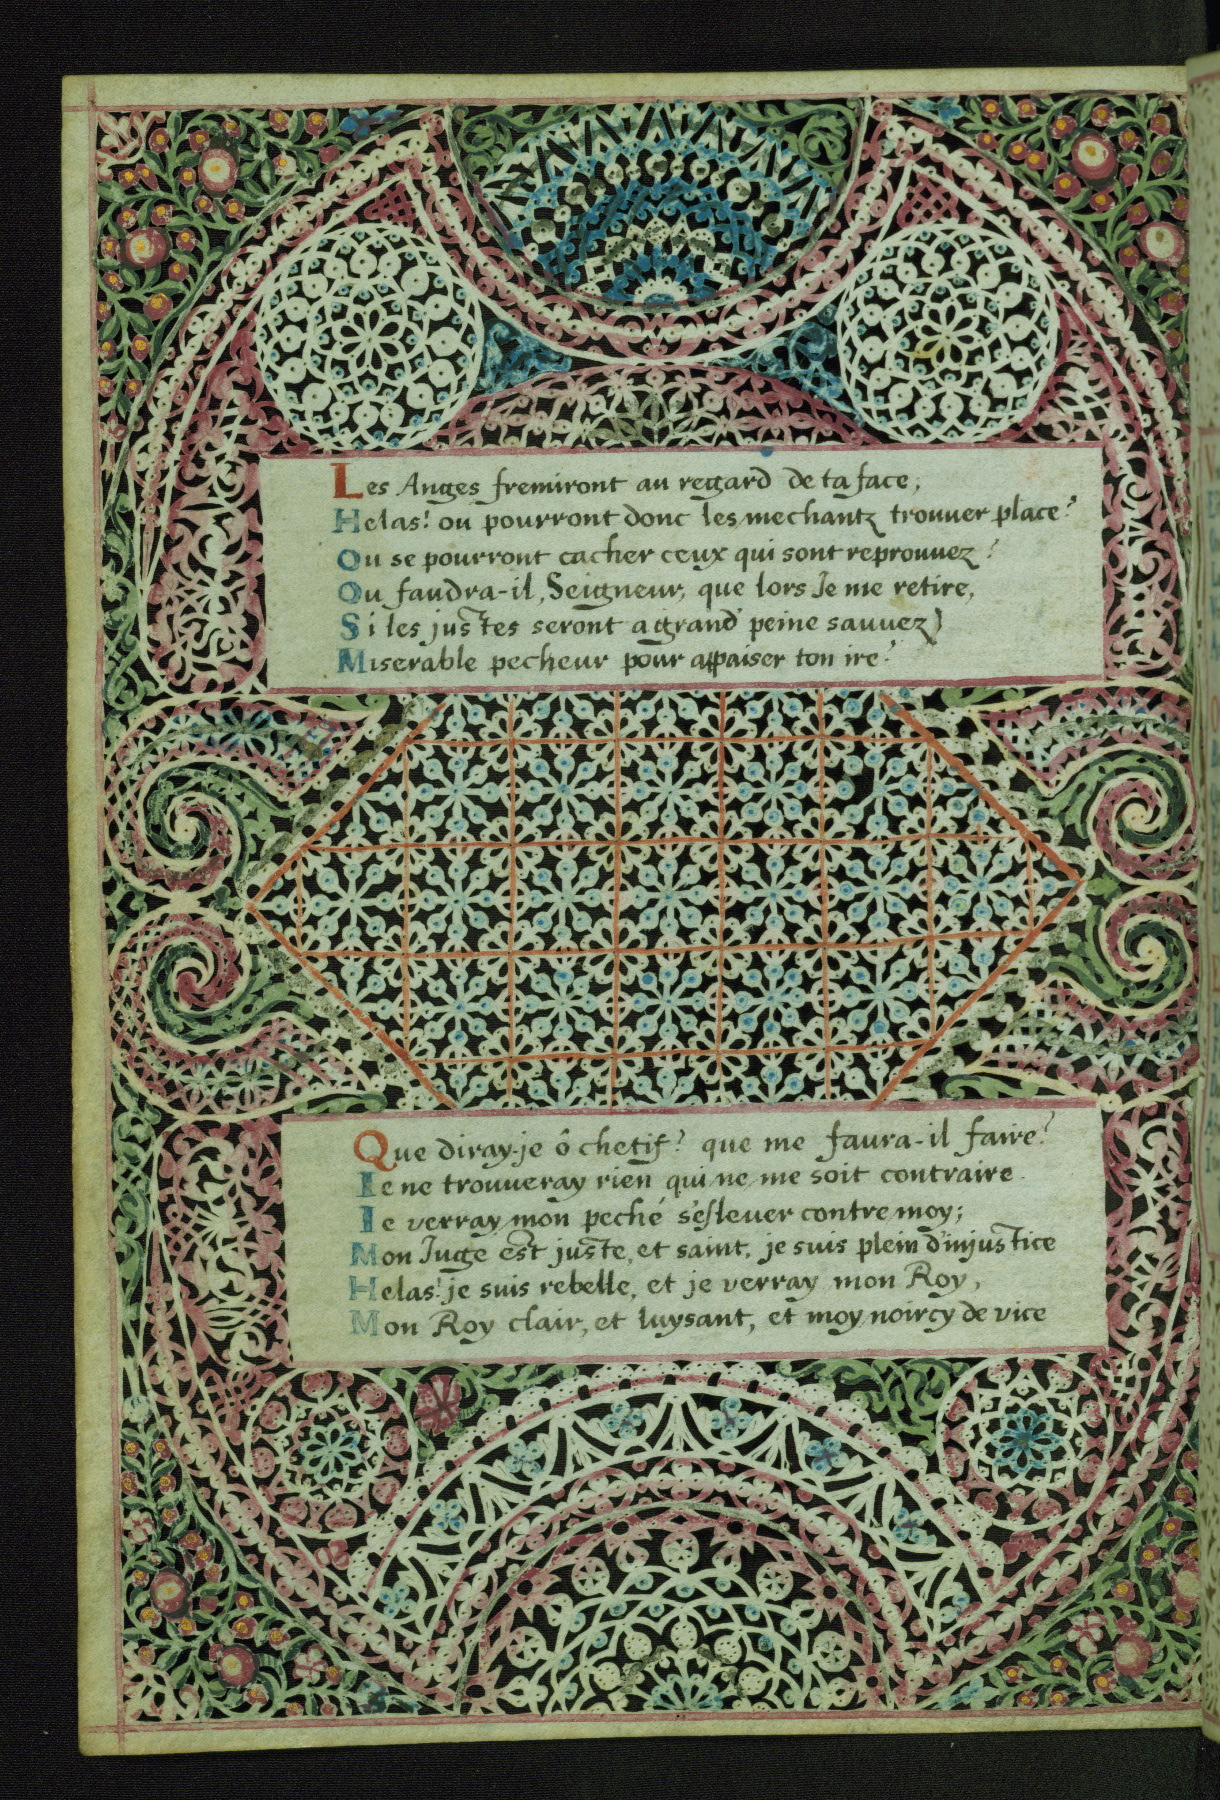 Les Anges fremiront au regard de ta face,
Helas! ou pourront donc les mechantz trouuer place?
Ou se pourront cacher ceux qui sont reprouuez?
Ou faudra-il, Seigneur, que lors Je me retire,
Si les justes seront a grand' peine sauuez)
Miserable pecheur pour appaiser ton ire?
Que diray-je ô chetif? que me faura-il faire?
Ie ne trouueray rien qui ne me soit contraire.
Ie verray mon peché s'esleuer contre moy;
Mon Juge est juste, et saint, je suis plein d'injustice
Helas! je suis rebelle, et je verray mon Roy,
Mon Roy clair, et luysant, et moy noircy de vice